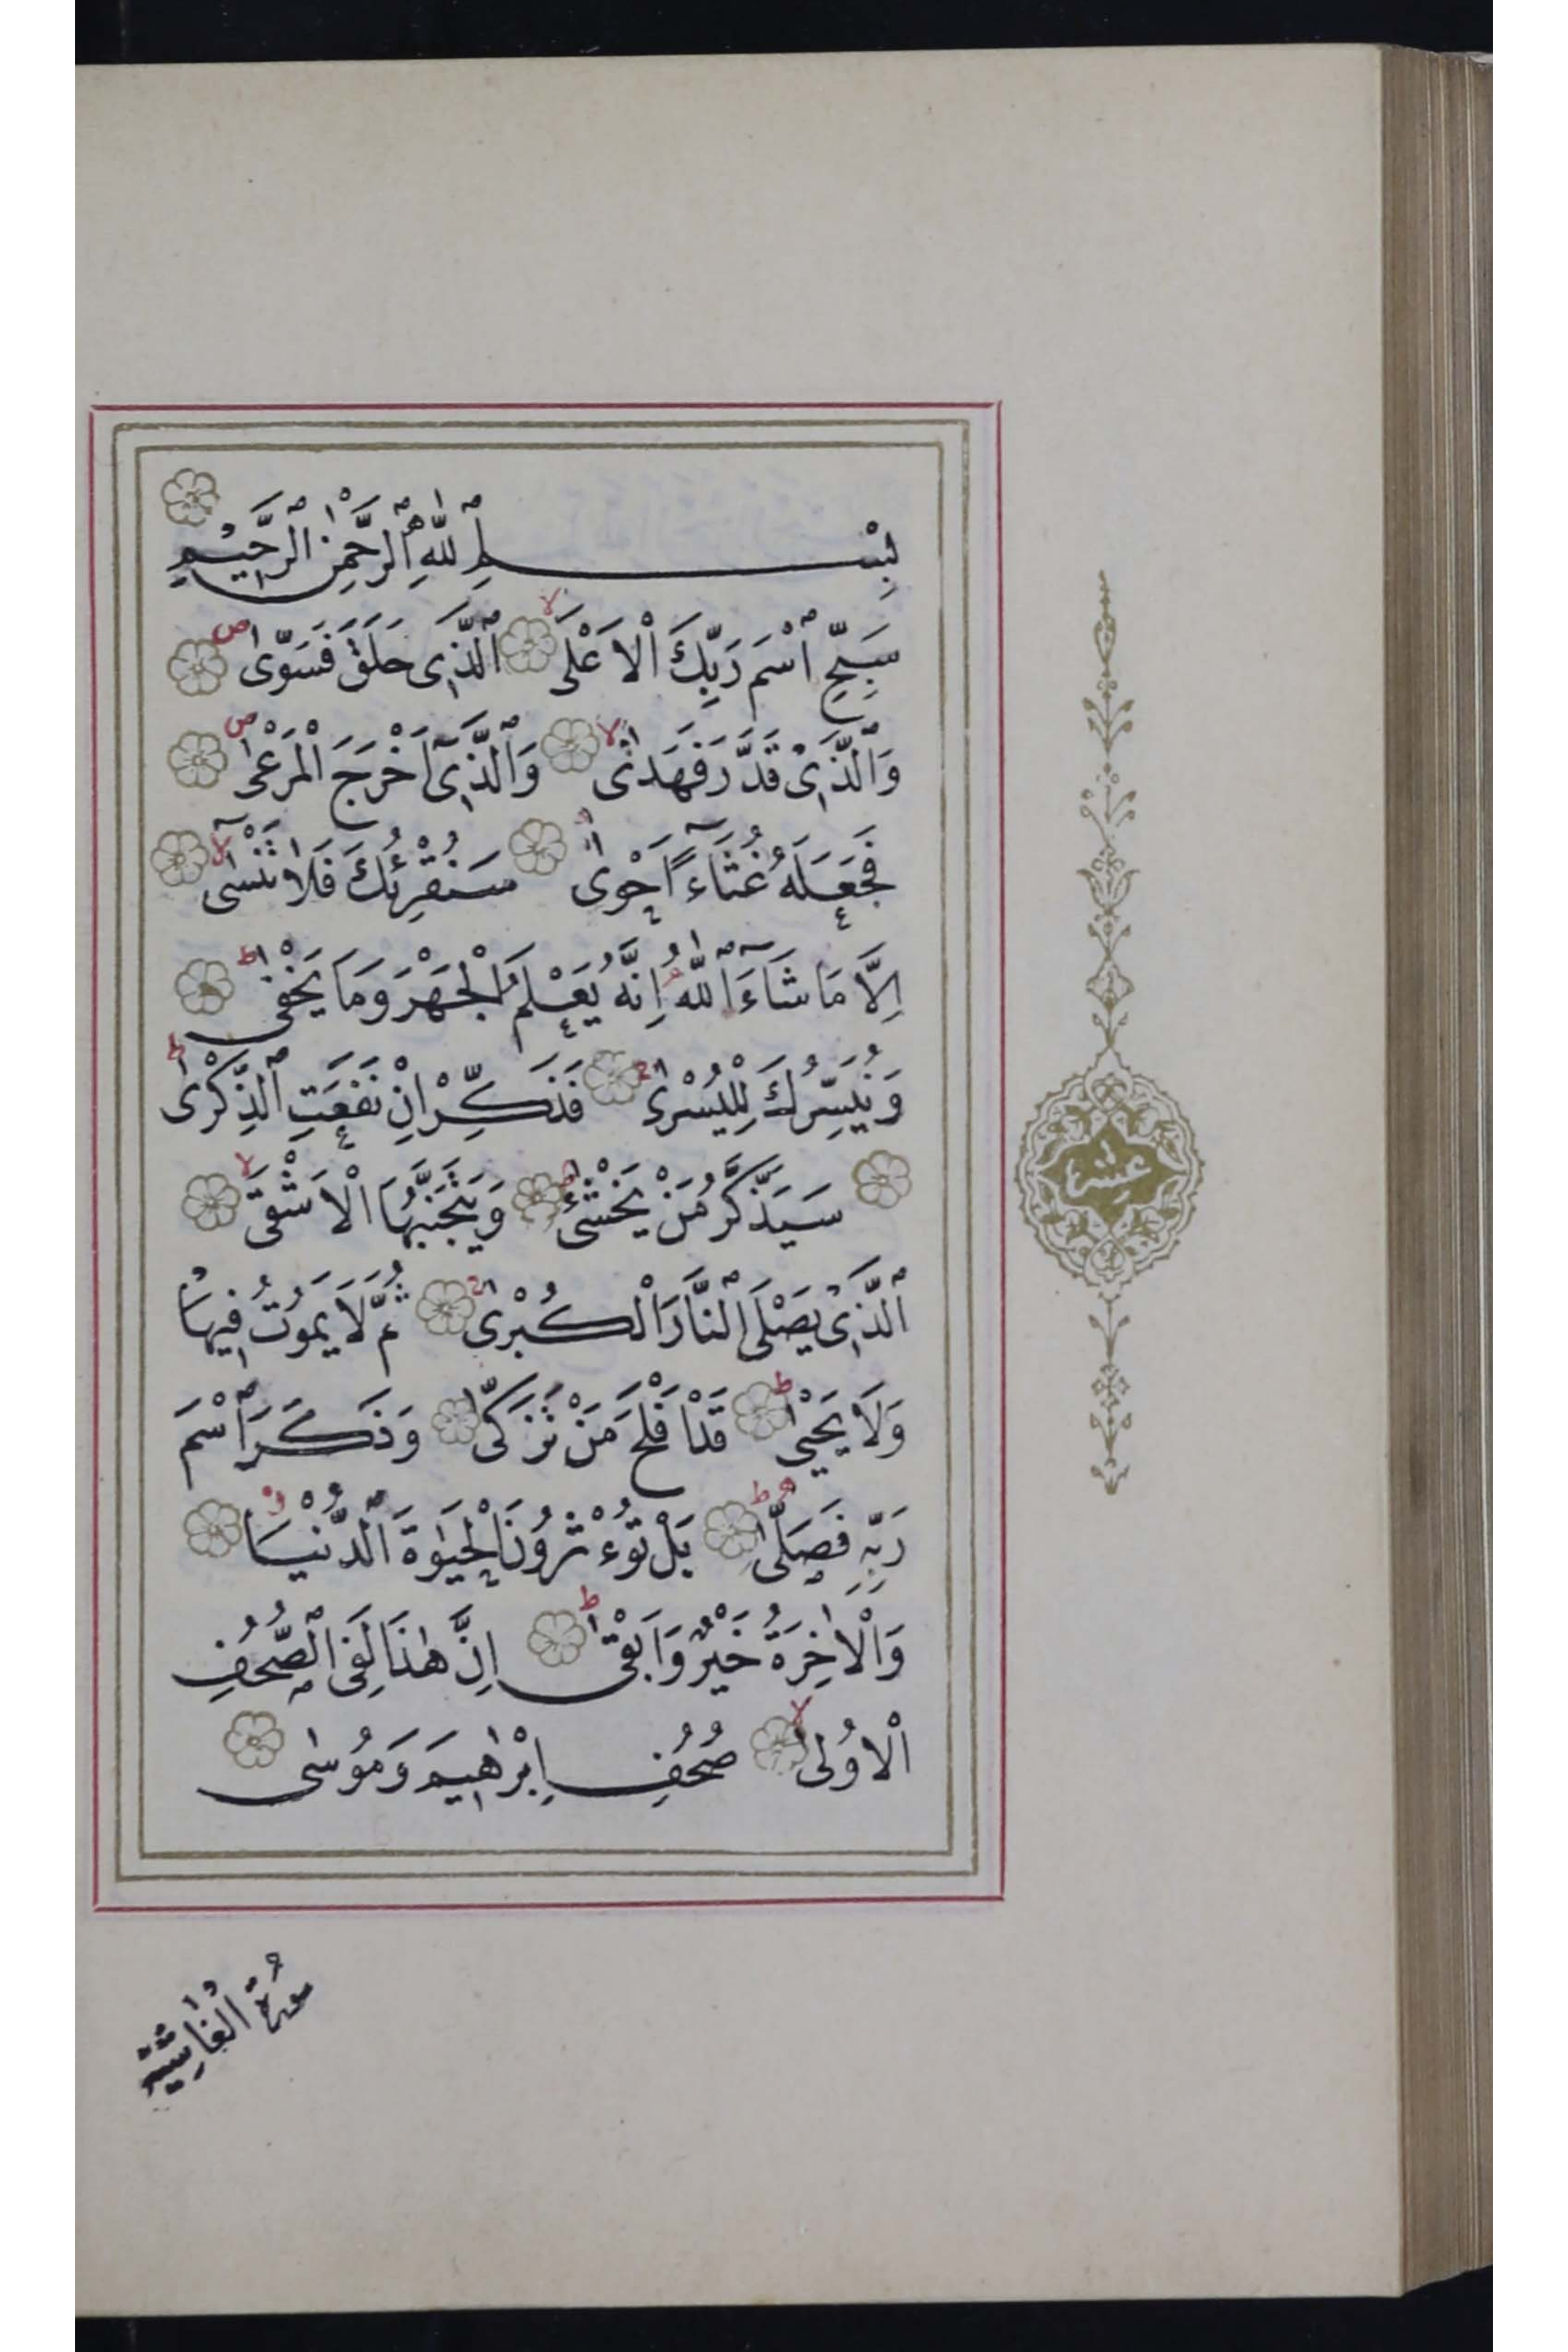 بِسْمِ ٱللّٰهِ ٱلرَّحْمٰنِ ٱلرَّحِيمِ
سَبِّحِ ٱسْمَ رَبِّكَ ٱلْاَعْلَىٰ ٱلَّذِى خَلَقَ فَسَوّٰى
وَٱلَّذِى قَدَّرَ فَهَدٰى وَٱلَّذِىٓ اَخْرَجَ ٱلْمَرْعٰى
فَجَعَلَهُ غُثَآءً اَحْوٰى سَنُقْرِئُكَ فَلَا تَنْسٰىٓ
اِلَّا مَا شَآءَ ٱللّٰهُ اِنَّهُ يَعْلَمُ ٱلْجَهْرَ وَمَا يَخْفٰى
وَنُيَسِّرُكَ لِلْيُسْرٰى فَذَكِّرْ اِنْ نَفَعَتِ ٱلذِّكْرٰى
سَيَذَّكَّرُ مَنْ يَخْشٰى وَيَتَجَنَّبُهَا ٱلْاَشْقَى
ٱلَّذِى يَصْلَى ٱلنَّارَ ٱلْكُبْرٰى ثُمَّ لَا يَمُوتُ فِيهَا
وَلَا يَحْيٰى قَدْ اَفْلَحَ مَنْ تَزَكّٰى وَذَكَرَ ٱسْمَ
رَبِّهِ فَصَلّٰى بَلْ تُؤْثِرُونَ ٱلْحَيٰوةَ ٱلدُّنْيَا
وَٱلْاٰخِرَةُ خَيْرٌ وَاَبْقٰى اِنَّ هٰذَا لَفِى ٱلصُّحُفِ
ٱلْاُولٰى صُحُفِ اِبْرٰهِيمَ وَمُوسٰى
عشر
سُورَةُ ٱلْغَاشِيَةِ